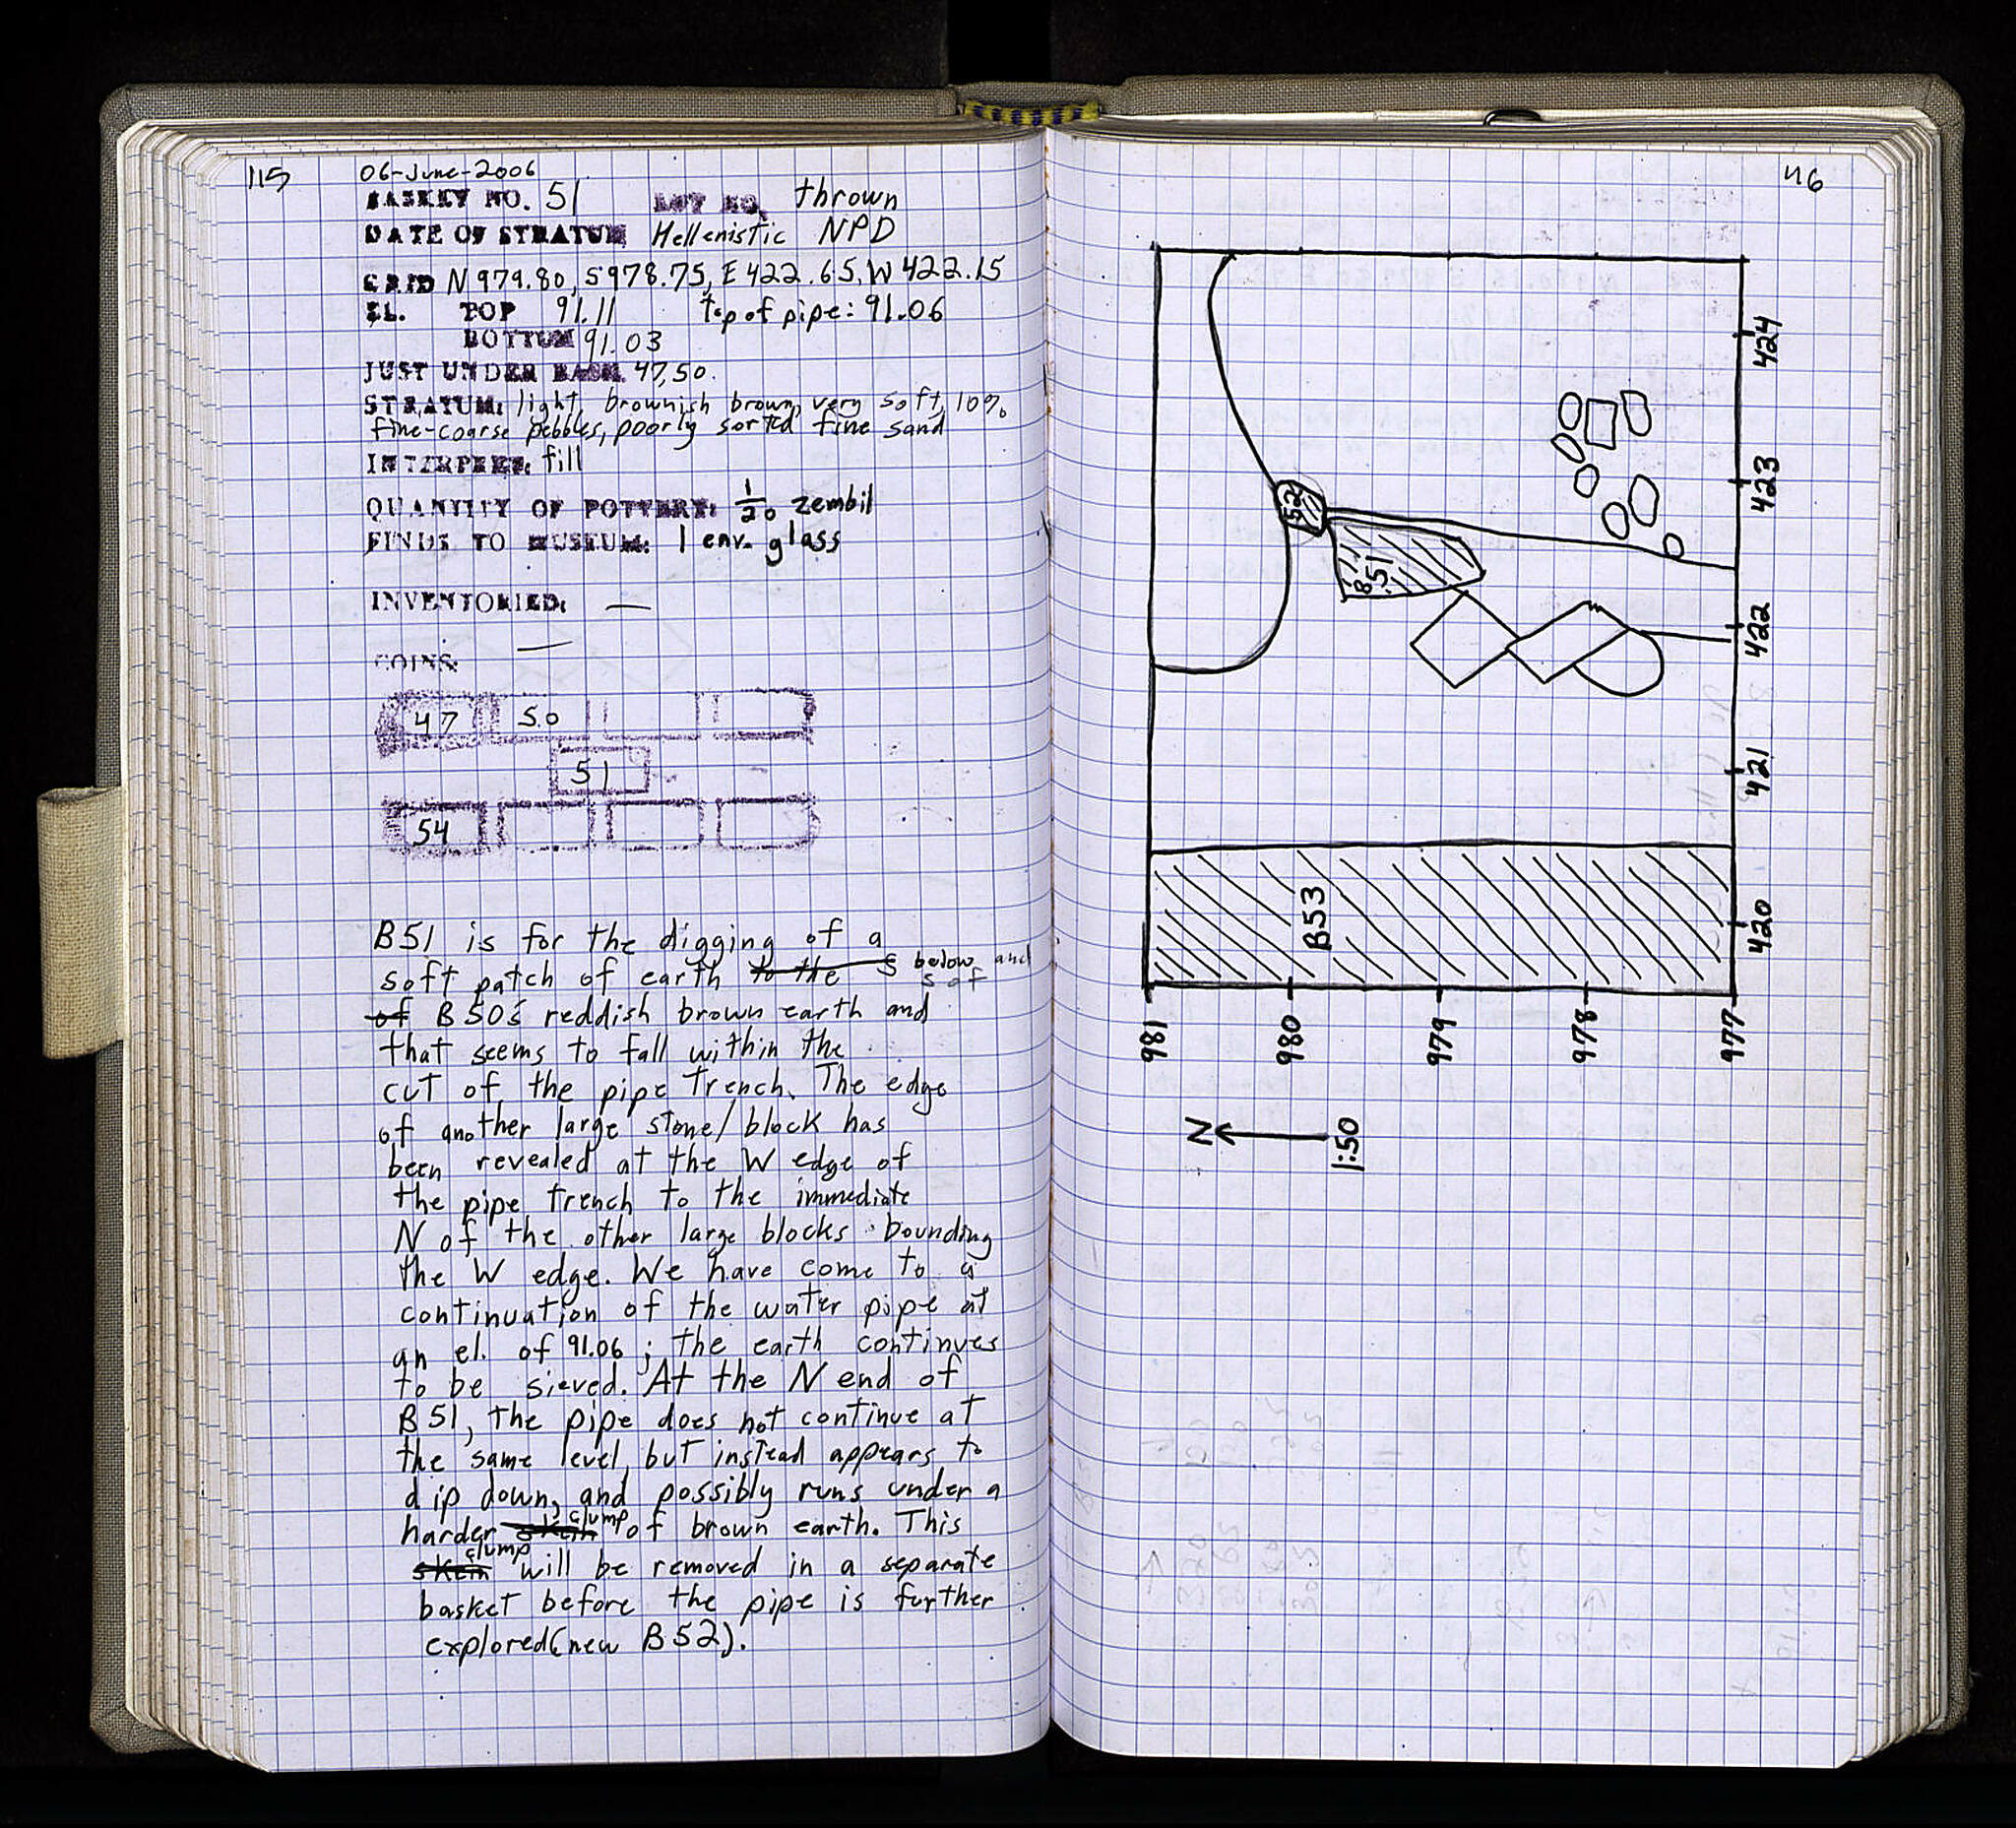 115
06-June-2006
BASKET NO. 51 LOT NO. thrown
DATE OF STRATUM Hellenistic NPD
GRID N979.80, S978.75, E422.65, W422.15
EL. TOP 91.11 top of pipe: 91.06
BOTTOM 91.03
JUST UNDER BASK. 47,50.
STRATUM: light brownish brown, very soft, 10%
fine-coarse pebbles, poorly sorted fine sand
INTERPRET: fill
QUANTITY OF POTTERY: 1/20 zembil
FINDS TO MUSEUM: 1 env. glass
INVENTORIED: —
COINS: —
47 50
51
54
B51 is for the digging of a
soft patch of earth to the S below and S of
of B50's reddish brown earth and
that seems to fall within the
cut of the pipe trench. The edge
of another large stone/block has
been revealed at the W edge of
the pipe trench to the immediate
N of the other large blocks bounding
the W edge. We have come to a
continuation of the water pipe at
an el. of 91.06; the earth continues
to be sieved. At the N end of
B51, the pipe does not continue at
the same level, but instead appears to
dip down, and possibly runs under a
harder clump of brown earth. This
clump will be removed in a separate
basket before the pipe is further
explored (new B52).
116
424
423
422
421
420
52
B51
B53
981
980
979
978
977
N
1:50